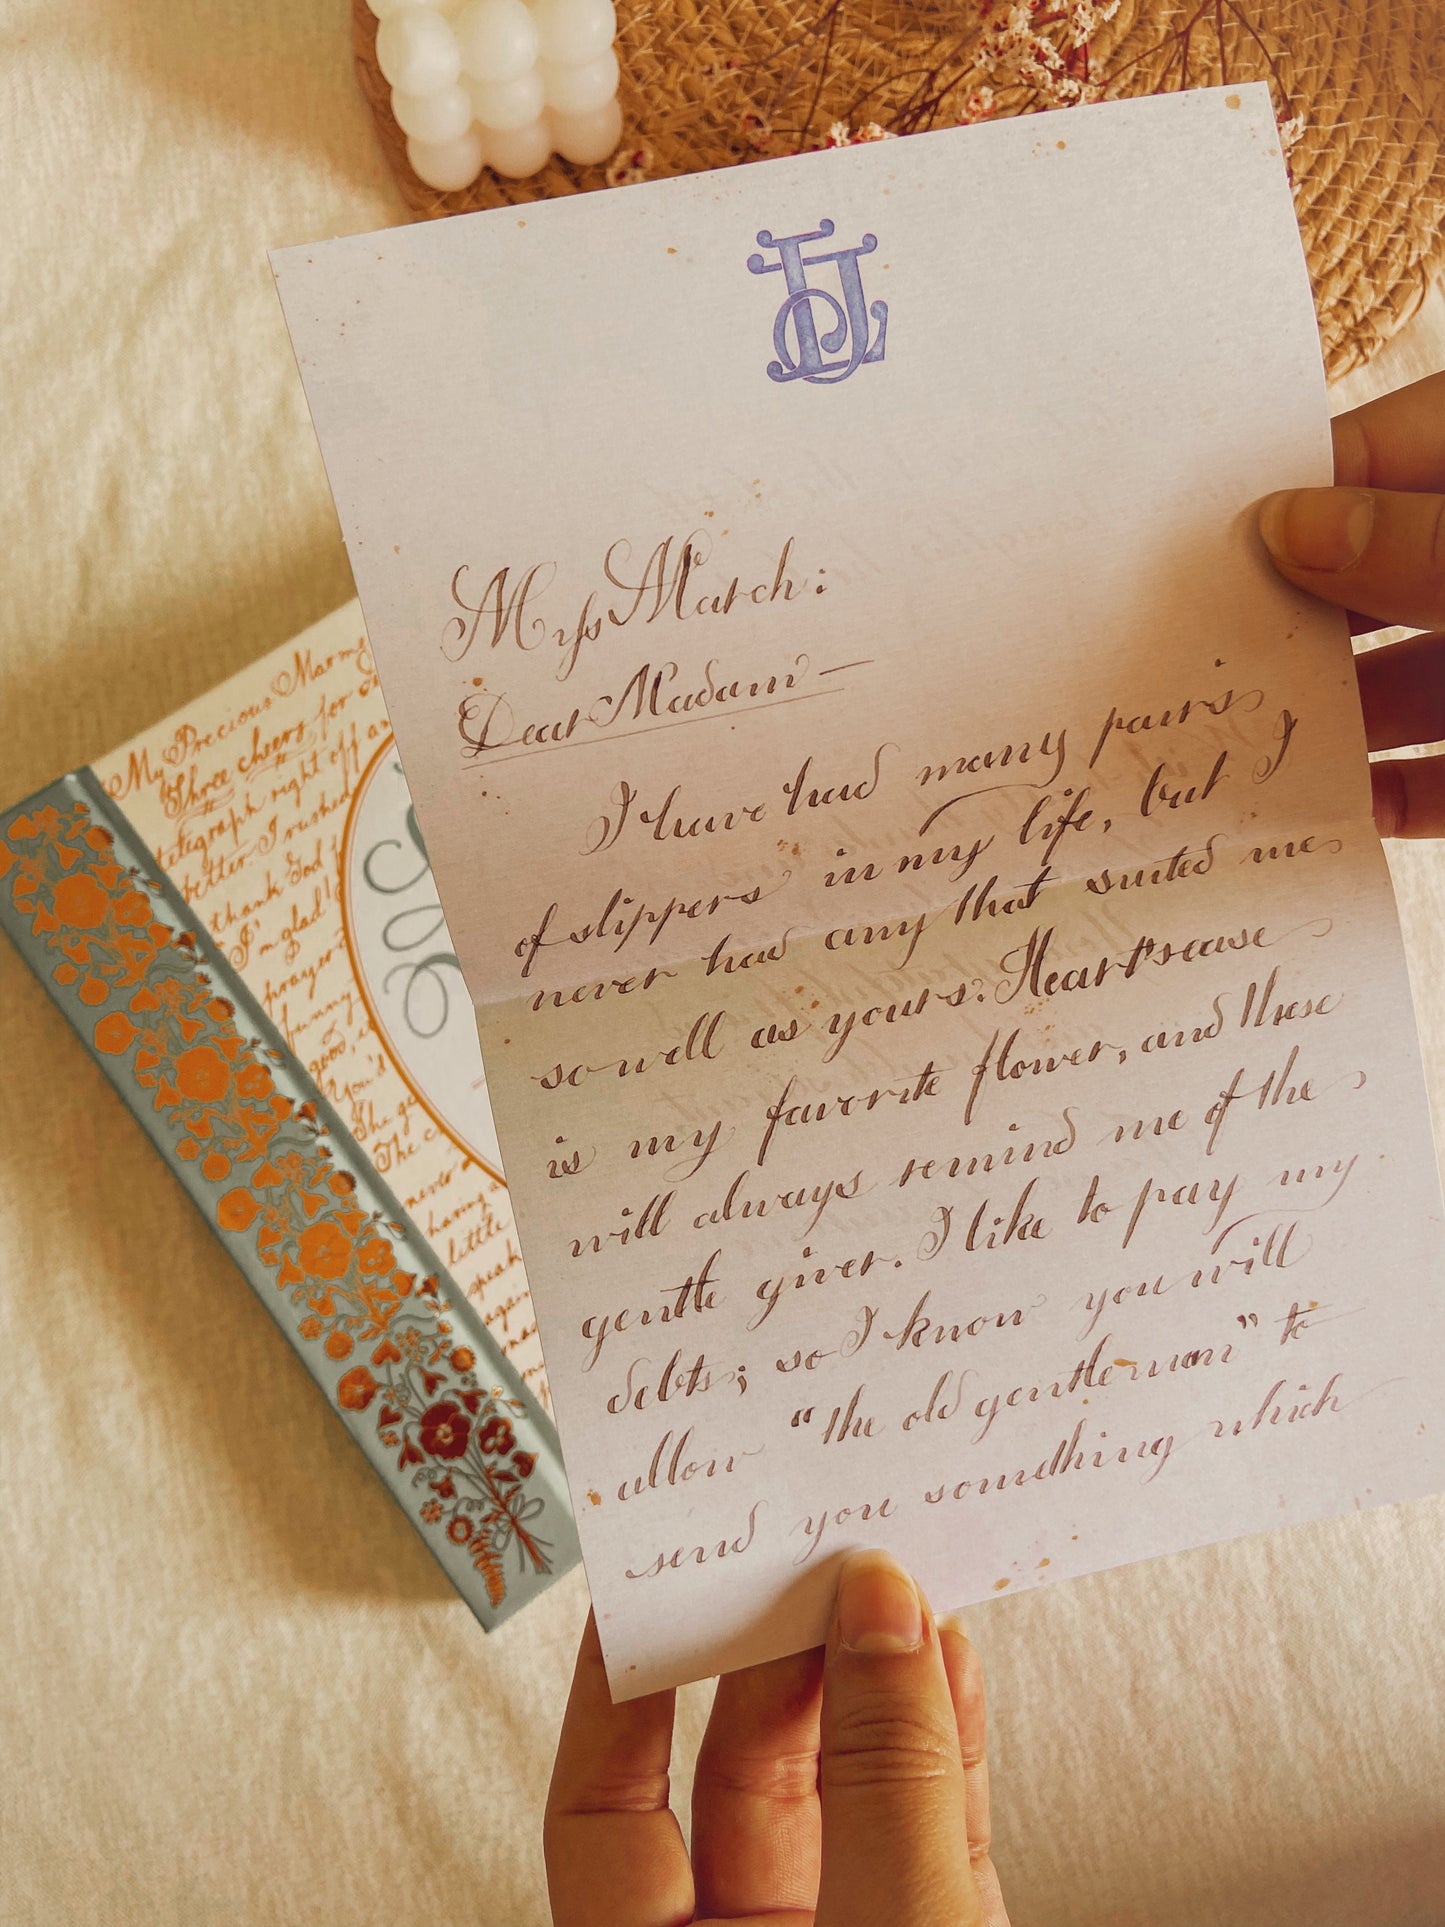 Miss March:
Dear Madam—
I have had many pairs
of slippers in my life, but I
never had any that suited me
so well as yours. Heart's-ease
is my favorite flower, and these
will always remind me of the
gentle giver. I like to pay my
debts; so I know you will
allow "the old gentleman" to
send you something which
My Precious Marm
Three cheers for
telegraph right off
better. I rushed
thank God
I'm glad!
prayer
funny
good,
You'd
She
The
never
having
little
speak
again